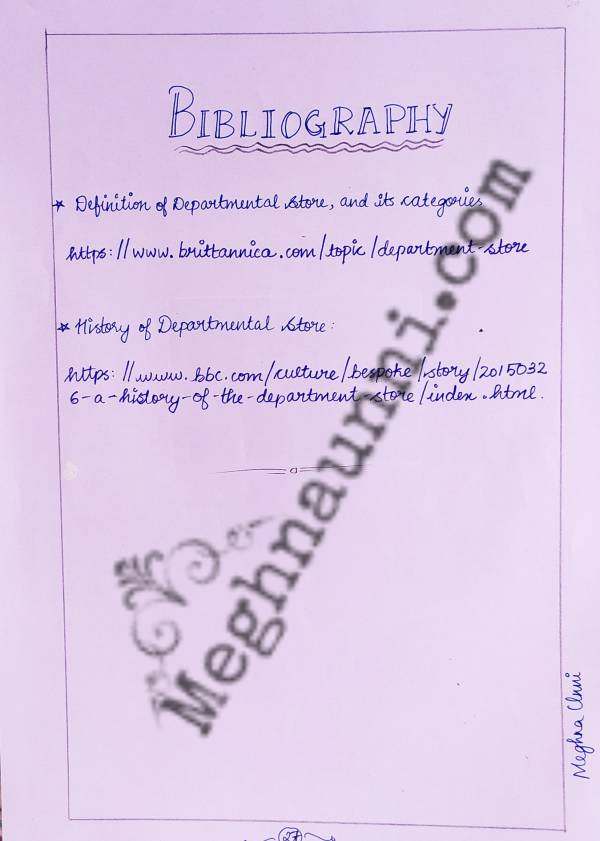 BIBLIOGRAPHY
* Definition of Departmental Store, and its categories
https://www.brittannica.com/topic/department-store
* History of Departmental Store:
https://www.bbc.com/culture/bespoke/story/2015032
6-a-history-of-the-department-store/index.html.
Meghnaunni.com
Meghna Unni
27